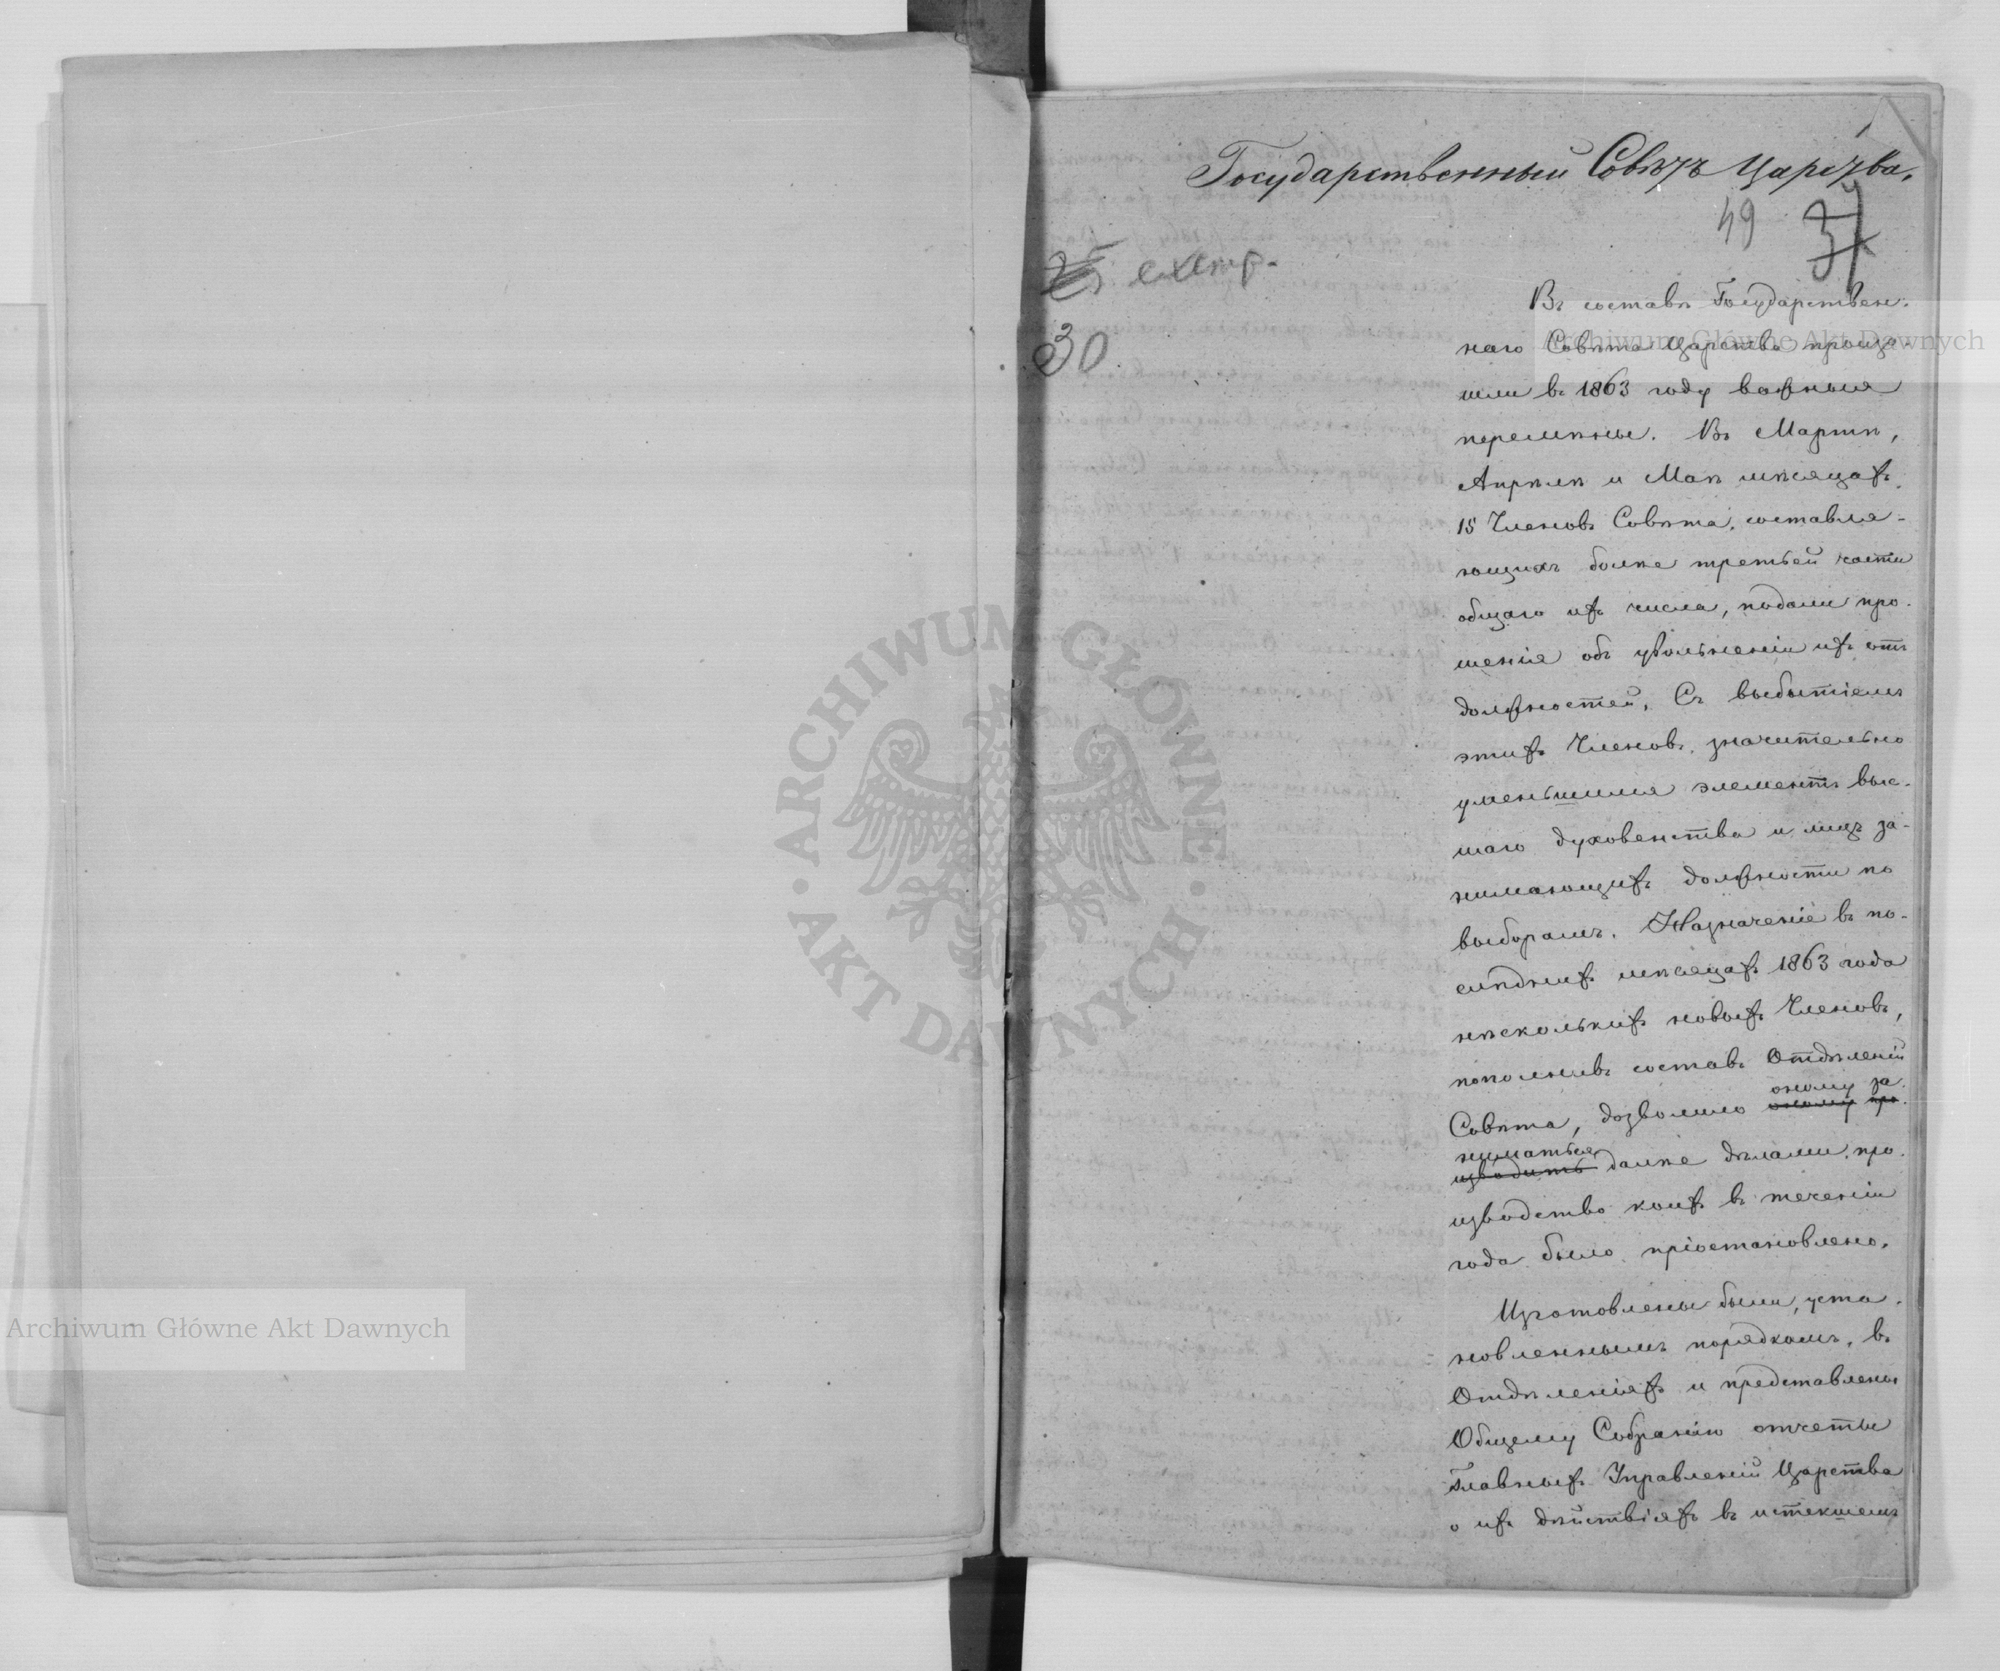 Государственный Совѣтъ Царства.
49 37
25 экземр.
30
Въ составѣ Государствен-
наго Совѣта Царства произо-
шли въ 1863 году важныя
перемѣны. Въ Мартѣ,
Апрѣлѣ и Маѣ мѣсяцахъ,
15 Членовъ Совѣта, составля-
ющихъ болѣе третьей части
общаго ихъ числа, подали про-
шенія объ увольненіи ихъ отъ
должностей. Съ выбытіемъ
этихъ Членовъ, значительно
уменьшился элементъ выс-
шаго духовенства и лицъ за-
нимающихъ должности по
выборамъ. Назначеніе въ по-
слѣднихъ мѣсяцахъ 1863 года
нѣсколькихъ новыхъ Членовъ,
пополнивъ составъ Отдѣленій
оному за-
Совѣта, дозволило оному про-
ниматься
изводить далѣе дѣлами, про-
изводство коихъ въ теченіи
года было пріостановлено.
Изготовлены были, уста-
новленнымъ порядкомъ, въ
Отдѣленіяхъ и представлены
Общему Собранію отчеты
Главныхъ Управленій Царства
о ихъ дѣйствіяхъ въ истекшемъ
Archiwum Główne Akt Dawnych
Archiwum Główne Akt Dawnych
ARCHIWUM GŁÓWNE AKT DAWNYCH